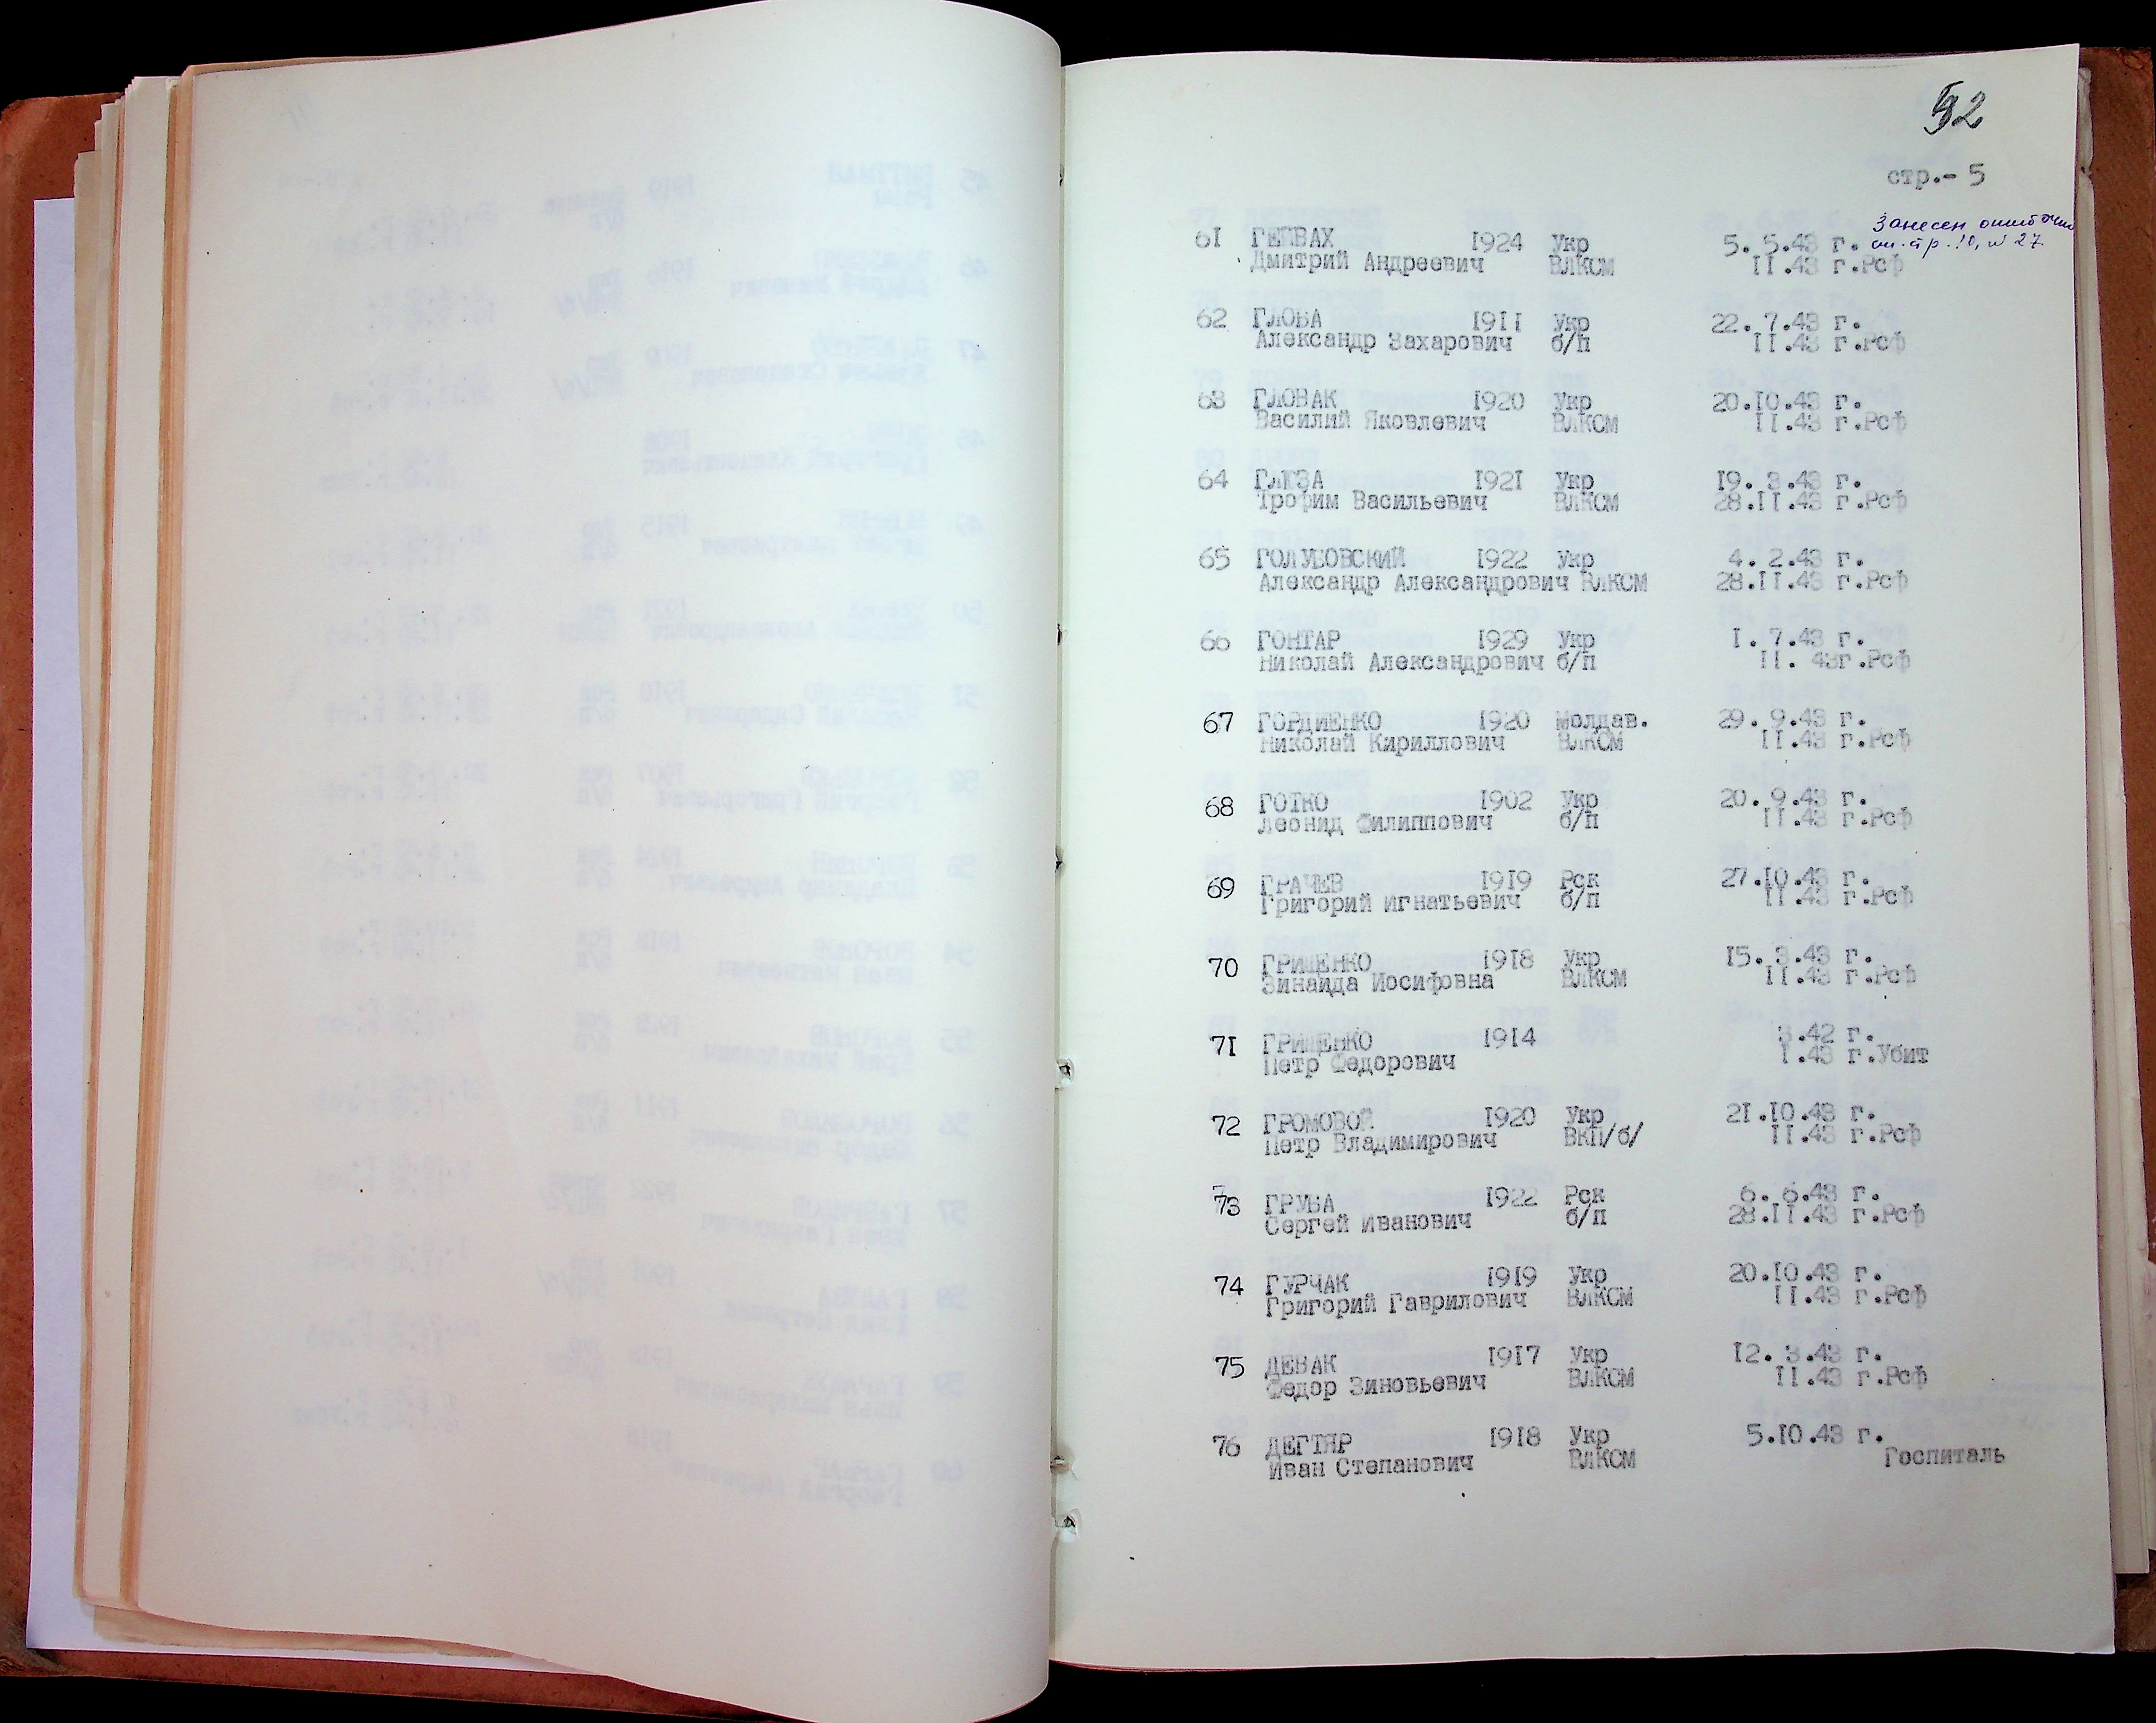 92
стр.- 5
Занесен ошибочно
см. стр. 10, № 27.
61 ГЕПВАХ 1924 Укр 5. 5.43 г.
Дмитрий Андреевич ВЛКСМ II.43 г.Рсф
62 ГЛОБА 19II Укр 22. 7.43 г.
Александр Захарович б/п II.43 г.Рсф
63 ГЛОВАК 1920 Укр 20.10.43 г.
Василий Яковлевич ВЛКСМ II.43 г.Рсф
64 ГЛЮЗА 192I Укр I9. 3.43 г.
Трофим Васильевич ВЛКСМ 28.II.43 г.Рсф
65 ГОЛУБОВСКИЙ 1922 Укр 4. 2.43 г.
Александр Александрович ВЛКСМ 28.II.43 г.Рсф
66 ГОНТАР 1929 Укр I. 7.43 г.
Николай Александрович б/п II. 43г.Рсф
67 ГОРДИЕНКО 1920 Молдав. 29. 9.43 г.
Николай Кириллович ВЛКСМ II.43 г.Рсф
68 ГОТКО 1902 Укр 20. 9.43 г.
Леонид Филиппович б/п II.43 г.Рсф
69 ГРАЧЕВ 1919 Рск 27.10.43 г.
Григорий Игнатьевич б/п II.43 г.Рсф
70 ГРИЩЕНКО 1918 Укр I5. 3.43 г.
Зинаида Иосифовна ВЛКСМ II.43 г.Рсф
7I ГРИЩЕНКО 1914 3.42 г.
Петр Федорович I.43 г.Убит
72 ГРОМОВОЙ 1920 Укр 2I.10.43 г.
Петр Владимирович ВКП/б/ II.43 г.Рсф
73 ГРУБА 1922 Рск 6. 6.43 г.
Сергей Иванович б/п 28.II.43 г.Рсф
74 ГУРЧАК 1919 Укр 20.10.43 г.
Григорий Гаврилович ВЛКСМ II.43 г.Рсф
75 ДЕВАК 1917 Укр I2. 3.43 г.
Федор Зиновьевич ВЛКСМ II.43 г.Рсф
76 ДЕГТЯР 1918 Укр 5.10.43 г.
Иван Степанович ВЛКСМ Госпиталь